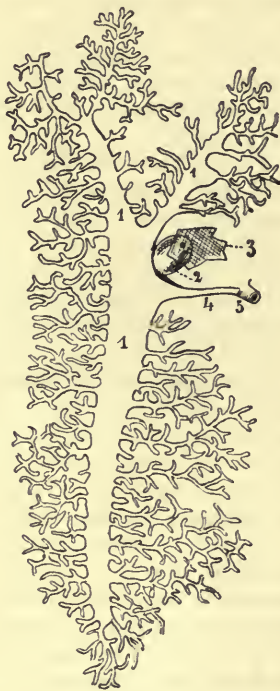 1
1
3
2
4
5
1